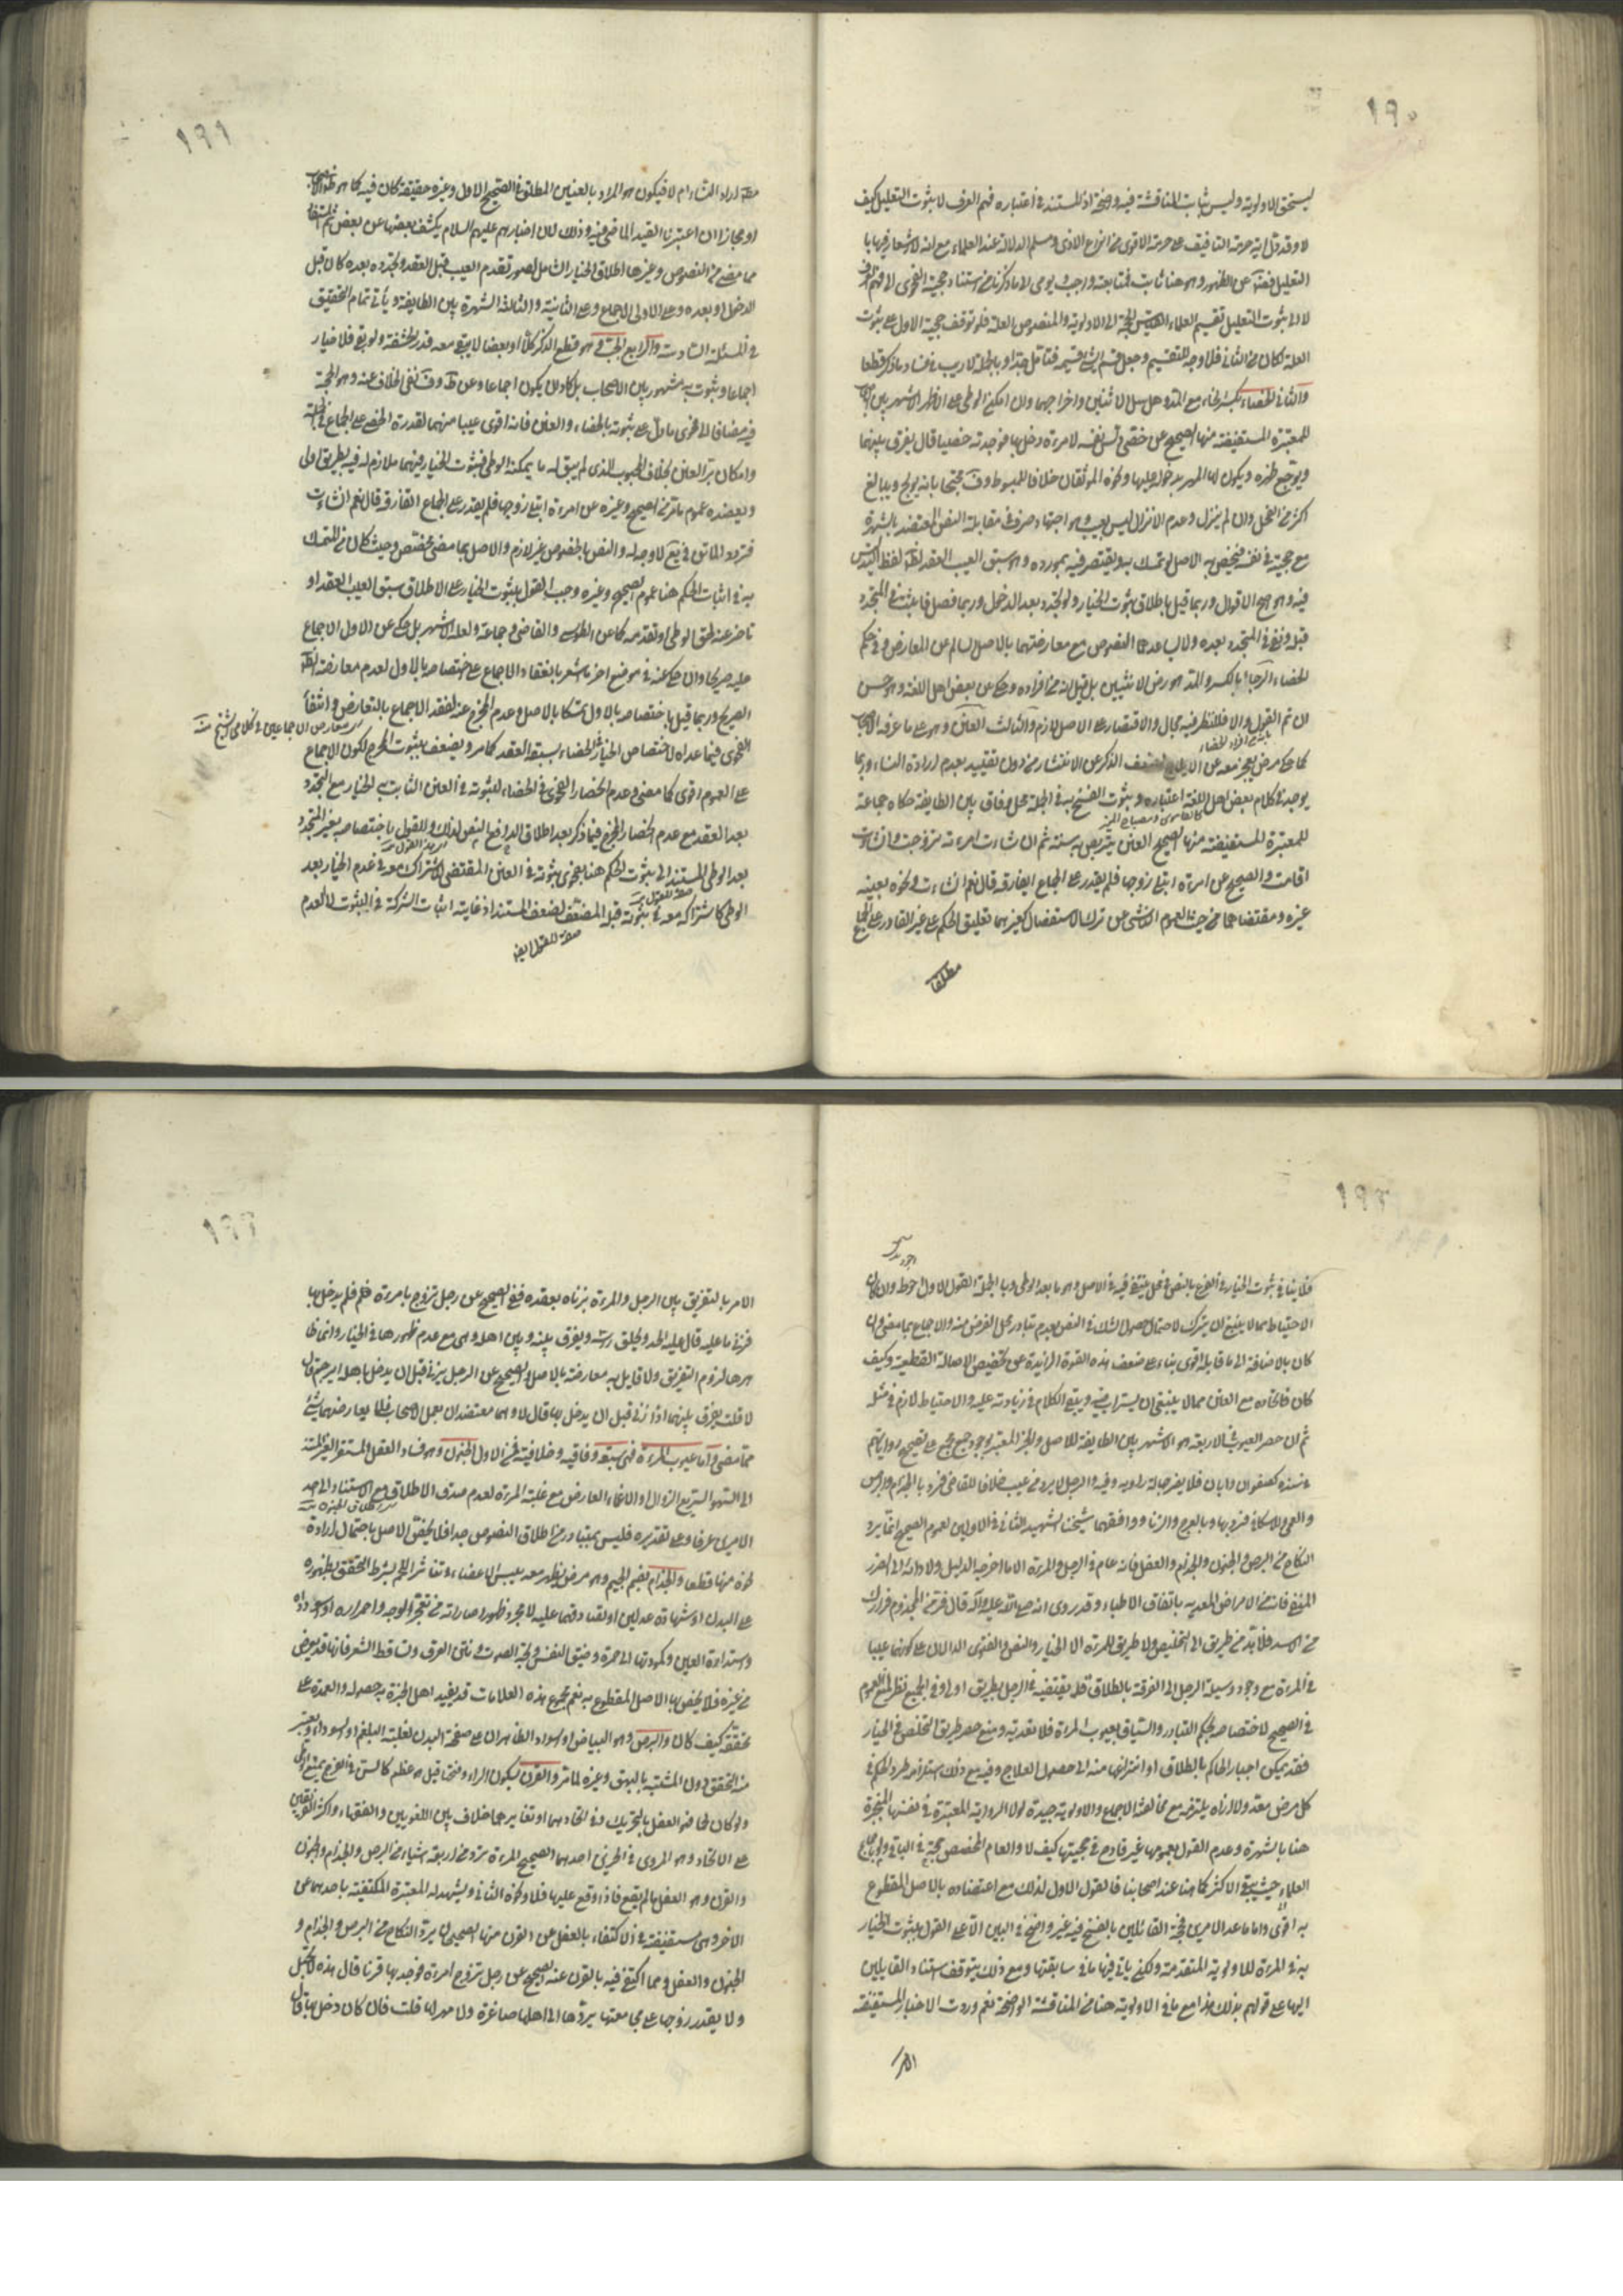 ١٩٠
ليستحق الاولوية وليس بثابت المناقشة فيه واضحة اذ المستند في اعتباره فهم العرف لا ثبوت التعليل كيف
لا وقد تدل اية حرمة التأفيف على حرمة الاقوى من انواع الاذى ومسلم الدلالة عند العلماء مع انه لا اشعار فيها با
التعليل فضلا عن الظهور وهو هنا ثابت فمتابعته واجب ويومي الى ما ذكرنا من استناد حجية الفحوى الى فهم العرف
لا الى ثبوت التعليل تقسيم العلماء القياس الحجة الى الاولوية والمنصوص العلة فلو توقف حجية الاول على ثبوت
العلة لكان من الثاني فلا وجه للتقسيم وجعل قسم الشيء قسيمه فتامل جدا وبالجملة لا ريب في فساد ما ذكر قطعا
والثاني الخصاء بكسر الخاء مع المد وهو سل الانثيين واخراجهما وان امكن الوطي على الاظهر الاشهر بين اصحابنا
للمعتبرة المستفيضة منها الصحيح عن خصي دلس نفسه لامرءة دخل بها فوجدته خصيا قال يفرق بينهما
ويوجع ظهره ويكون لها المهر بدخوله عليها ونحوه الموثقان خلافا للمبسوط وف محتجا بانه يولج ويبالغ
اكثر من الفحل وان لم ينزل وعدم الانزال ليس بعيب وهو اجتهاد صرف في مقابلة النص المعتضد بالشهرة
مع حجيته في نفسه فيخص به الاصل لو تمسك به ويقتصر فيه بمورده وهو سبق العيب العقد لظاهر لفظ التدليس
فيه وهو اصح الاقوال وربما قيل باطلاق ثبوت الخيار ولو تجدد بعد الدخول وربما فصل فاثبت في المتجدد
قبله ونفي في المتجدد بعده ولا يساعدهما النصوص مع معارضتهما بالاصل السالم عن المعارض وفي حكم
الخصاء الوجاء بالكسر والمد وهو رض الانثيين بل قيل انه من افراده وحكي عن بعض اهل اللغة وهو حسن
ان تم القول والا فللنظر فيه مجال والاقتصار على الاصل لازم والثالث العنن وهو على ما عرفه الاصحاب
كما حكي مرض يعجز معه عن الايلاج لضعف الذكر عن الانتشار من دون تقييد بعدم ارادة النساء وربما
يوجد في كلام بعض اهل اللغة اعتباره وثبوت الفسخ به في الجملة محل وفاق بين الطايفة حكاه جماعة
للمعتبرة المستفيضة منها الصحيح العنين يتربص به سنة ثم ان شاءت امرءته تزوجت وان شاءت
اقامت والصحيح عن امرءة ابتلي زوجها فلم يقدر على الجماع ايفارقه قال نعم ان شاءت ونحوه بعينه
غيره ومقتضاهما من حيث العموم الناشي من ترك الاستفصال كغيرهما تعليق الحكم على غير القادر على الجماع
مطلقا
١٩١
او مجازا ان اعتبرنا القيد الماضي فيه وذلك لان اخبارهم عليهم السلام يكشف بعضها عن بعض
مما مضى من النصوص وغيرها اطلاق الخيار الشامل لصور تقدم العيب قبل العقد وتجدده بعده كان قبل
الدخول او بعده وعلى الاولى الاجماع وعلى الثانية والثالثة الشهرة بين الطايفة ويأتي تمام التحقيق
في المسئلة السادسة والرابع الجب وهو قطع الذكر كلا او بعضا لا يبقى معه قدر الحشفة ولو بقي فلا خيار
اجماعا وثبوته به مشهور بين الاصحاب بل كاد ان يكون اجماعا وعن ط وف نفي الخلاف عنه وهو الحجة
فيه مضافا الى فحوى ما دل على ثبوته بالخصاء والعنن فانه اقوى عيبا منهما لقدرة الخصي على الجماع في الجملة
وامكان برء العنين بخلاف المجبوب الذي لم يبق له ما يمكنه الوطي فثبوت الخيار فيهما ملازم له فيه بطريق اولى
ويعضده عموم ما مر من الصحيح وغيره عن امرءة ابتلي زوجها فلم يقدر على الجماع اتفارقه قال نعم ان شاءت
فتردد الماتن في يع لا وجه له والنص بالخصوص غير لازم والاصل بما مضى مختص وحيث كان من المتمسك
به في اثبات الحكم هنا عموم الصحيح وغيره وجب القول بثبوت الخيار على الاطلاق سبق العيب العقد او
تاخر عنه لحق الوطي او تقدمه كما عن الطوسي والقاضي وجماعة ولعله الاشهر بل حكي عن الاول الاجماع
عليه صريحا وان حكي عنه في موضع اخر ما اشعر بانعقاد الاجماع على اختصاصه بالاول لعدم معارضته لظ
الصريح وربما قيل باختصاصه بالاول تمسكا بالاصل وعدم المخرج عنه لفقد الاجماع بالتعارض وانتفاء
الفحوى فيما عداه لاختصاص الخيار في الخصاء بسبقه العقد كما مر ويضعف بثبوت المخرج لكون الاجماع
على العموم اقوى كما مضى وعدم انحصار الفحوى في الخصاء لثبوته في العنن الثابت به الخيار مع التجدد
بعد العقد مع عدم انحصار المخرج فيما ذكر بعد اطلاق النص لذلك وللقول باختصاصه بغير المتجدد
بعد الوطي المستند الى ثبوت الحكم هنا بفحوى ثبوته في العنن المقتضي لاشتراك معه في عدم الخيار بعد
الوطي كاشتراكه معه في ثبوته قبله المضعف لضعف المستند اذ غايته اثبات الشركة في الثبوت لا العدم
١٩٢
فلا ينافي ثبوت الخيار في الفرع بالنص في محل ينتفي فيه في الاصل وهو ما بعد الوطي وبالجملة القول الاول احوط وان كان
الاحتياط مما لا ينبغي ان يترك لاحتمال حصول الشك في النص بعدم تبادر محل الفرض منه والاجماع بما مضى وان
كان بالاضافة الى ما قابله اقوى بناء على ضعف هذه القوة الزايدة عن تخصيص الاصالة القطعية وكيف
كان فاتحاده مع العنن مما لا ينبغي ان يستراب فيه ويبقى الكلام في زيادته عليه والاحتياط لازم في مثله
ثم ان حصر العيوب في الاربعة هو الاشهر بين الطايفة للاصل والخبر المعتبر بوجود جمع مجمع على تصحيح رواياتهم
في سنده كصفوان وابان فلا يضر جهالة راويه وفيه والرجل لا يرد من عيب خلافا للقاضي فرد بالجذام والبرص
والعمى وللاسكافي فرد بها وبالعرج والزناء ووافقهما شيخنا الشهيد الثاني في الاولين لعموم الصحيح انما يرد
النكاح من البرص والجنون والجذام والعفل فانه عام في الرجل والمرءة الا ما اخرجه الدليل ولادائه الى الضرر
المنفي فانه من الامراض المعدية باتفاق الاطباء وقد روي انه صلى الله عليه وآله قال فر من المجذوم فرارك
من الاسد فلا بد من طريق الى التخليص ولا طريق للمرءة الا الخيار والنص والفتوى الدالان على كونهما عيبا
في المرءة مع وجود وسيلة الرجل الى الفرقة بالطلاق قد يقتضيه في الرجل بطريق اولى وفي الجميع نظر لمنع العموم
في الصحيح لاختصاصه بحكم التبادر والسياق بعيوب المرءة فلا تعدية ومنع حصر طريق التخلص في الخيار
فقد يمكن اجبار الحاكم بالطلاق او انتزاعها منه الى حصول العلاج وفيه مع ذلك استلزامه طرد الحكم في
كل مرض معد ولا اراه يلتزمه مع مخالفته الاجماع والاولوية جيدة لولا الرواية المعتبرة في نفسها المنجبرة
هنا بالشهرة وعدم القول بعمومها غير قادح في حجيتها كيف لا والعام المخصص حجة في الباقي
العلماء حيث يبقى الاكثر كما هنا عند اصحابنا فالقول الاول لذلك مع اعتضاده بالاصل المقطوع
به اقوى واما ما عدا الامرين فحجة القائلين بالفسخ فيه غير واضح في البين الا على القول بثبوت الخيار
به في المرءة للاولوية المتقدمة ولكن ياتي فيها ما في سابقتها ومع ذلك يتوقف استناد القايلين
اليها على قولهم بذلك هذا مع ما في الاولوية هنا من المناقشة الواضحة نعم وردت الاخبار المستفيضة
الامر
١٩٣
الامر بالتفريق بين الرجل والمرءة بزناه بعقده ففي الصحيح عن رجل تزوج بامرءة فلم يدخل بها
فزنى ما عليه قال عليه الحد ويحلق رأسه ويفرق بينه وبين اهله وهي مع عدم ظهورها في الخيار وانما ظا
هرها لزوم التفريق ولا قايل به معارضة بالاصل والصحيح عن الرجل يزني قبل ان يدخل باهله ايرجم قال
لا قلت يفرق بينهما اذا زنى قبل ان يدخل بها قال لا وهما معتضدان بعمل الاصحاب فلا يعارضهما شيء
مما مضى واما عيوب المرءة فهي سبعة وفاقية وخلافية فمن الاول الجنون وهو فساد العقل المستقر الغير المستند
الى السهو السريع الزوال او الاغماء العارض مع غلبة المرءة لعدم صدق الاطلاق مع الاستناد الى احد
الامرين عرفا وعلى تقديره فليس بمتبادر من اطلاق النصوص جدا فلا يخص الاصل باحتمال ارادة
نحوه منها قطعا والجذام بضم الجيم وهو مرض يظهر معه يبس الاعضاء وتناثر اللحم بشرط التحقق بظهوره
على البدن او شهادة عدلين او تصادقهما عليه لا مجرد ظهور اماراته من تعجر الوجه واحمراره او اسوداده
واستدارة العين وكمودتها الى حمرة وضيق النفس وبحة الصوت ونتن العرق وتساقط الشعر فانها قد يعرض
من غيره فلا يخص بها الاصل المقطوع به نعم مجموع هذه العلامات قد يفيد اهل الخبرة به حصوله والعمدة على
تحققه كيف كان والبرص وهو البياض او السواد الظاهران على صفحة البدن لغلبة البلغم او السوداء ويعتبر
منه التحقق دون المشتبه بالبهق وغيره لما مر والقرن بسكون الراء وفتحها قيل هو عظم كالسن في الفرج يمنع الوطي
ولو كان لحما فهو العفل بالتحريك وفي اتحادهما او تغايرهما خلاف بين اللغويين والفقهاء واكثر الفريقين
على الاتحاد وهو المروي في الخبرين احدهما الصحيح المرءة ترد من اربعة اشياء من البرص والجذام والجنون
والقرن وهو العفل ما لم يقع فاذا وقع عليها فلا ونحوه الثاني ويشهد له المعتبرة المكتفية باحدهما عن
الاخر وهي مستفيضة في الاكتفاء بالعفل عن القرن منها الصحيحان يرد النكاح من البرص والجذام و
الجنون والعفل ومما اكتفي فيه بالقرن عنه الصحيح عن رجل تزوج امرءة فوجد بها قرنا قال هذه لا تحبل
ولا يقدر زوجها على مجامعتها يردها الى اهلها صاغرة ولا مهر لها قلت فان كان دخل بها قال